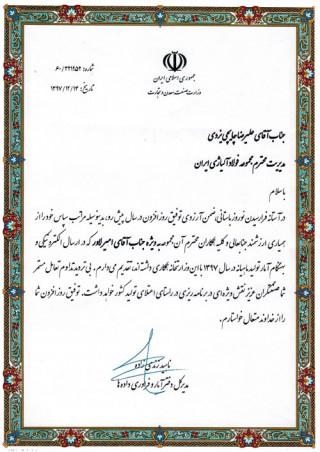 جمهوری اسلامی ایران
وزارت صنعت، معدن و تجارت
شماره: ۶۰/۳۲۹۲۵۲
تاریخ: ۱۳۹۷/۱۲/۱۴
جناب آقای علیرضا چایچی یزدی
مدیریت محترم مجموعه فولاد آلیاژی ایران
باسلام
در آستانه فرا رسیدن نوروز باستانی، ضمن آرزوی توفیق روزافزون در سال پیش رو، بدینوسیله مراتب سپاس خود را از
همیاری ارزشمند جنابعالی و کلیه همکاران محترم آن مجموعه به ویژه جناب آقای امیر لادر که در ارسال الکترونیکی و
بهنگام آمار تولید ماهیانه در سال ۱۳۹۷ با این وزارتخانه همکاری داشته اند، تقدیم می دارم. بی تردید تداوم تعامل مستمر
شما صنعتگران عزیز نقش ویژه ای در برنامه ریزی در راستای اعتلای تولید کشور خواهد داشت. توفیق روزافزون شما
را از خداوند متعال خواستارم.
ناهید زندی زاده
مدیرکل دفتر آمار و فرآوری داده ها